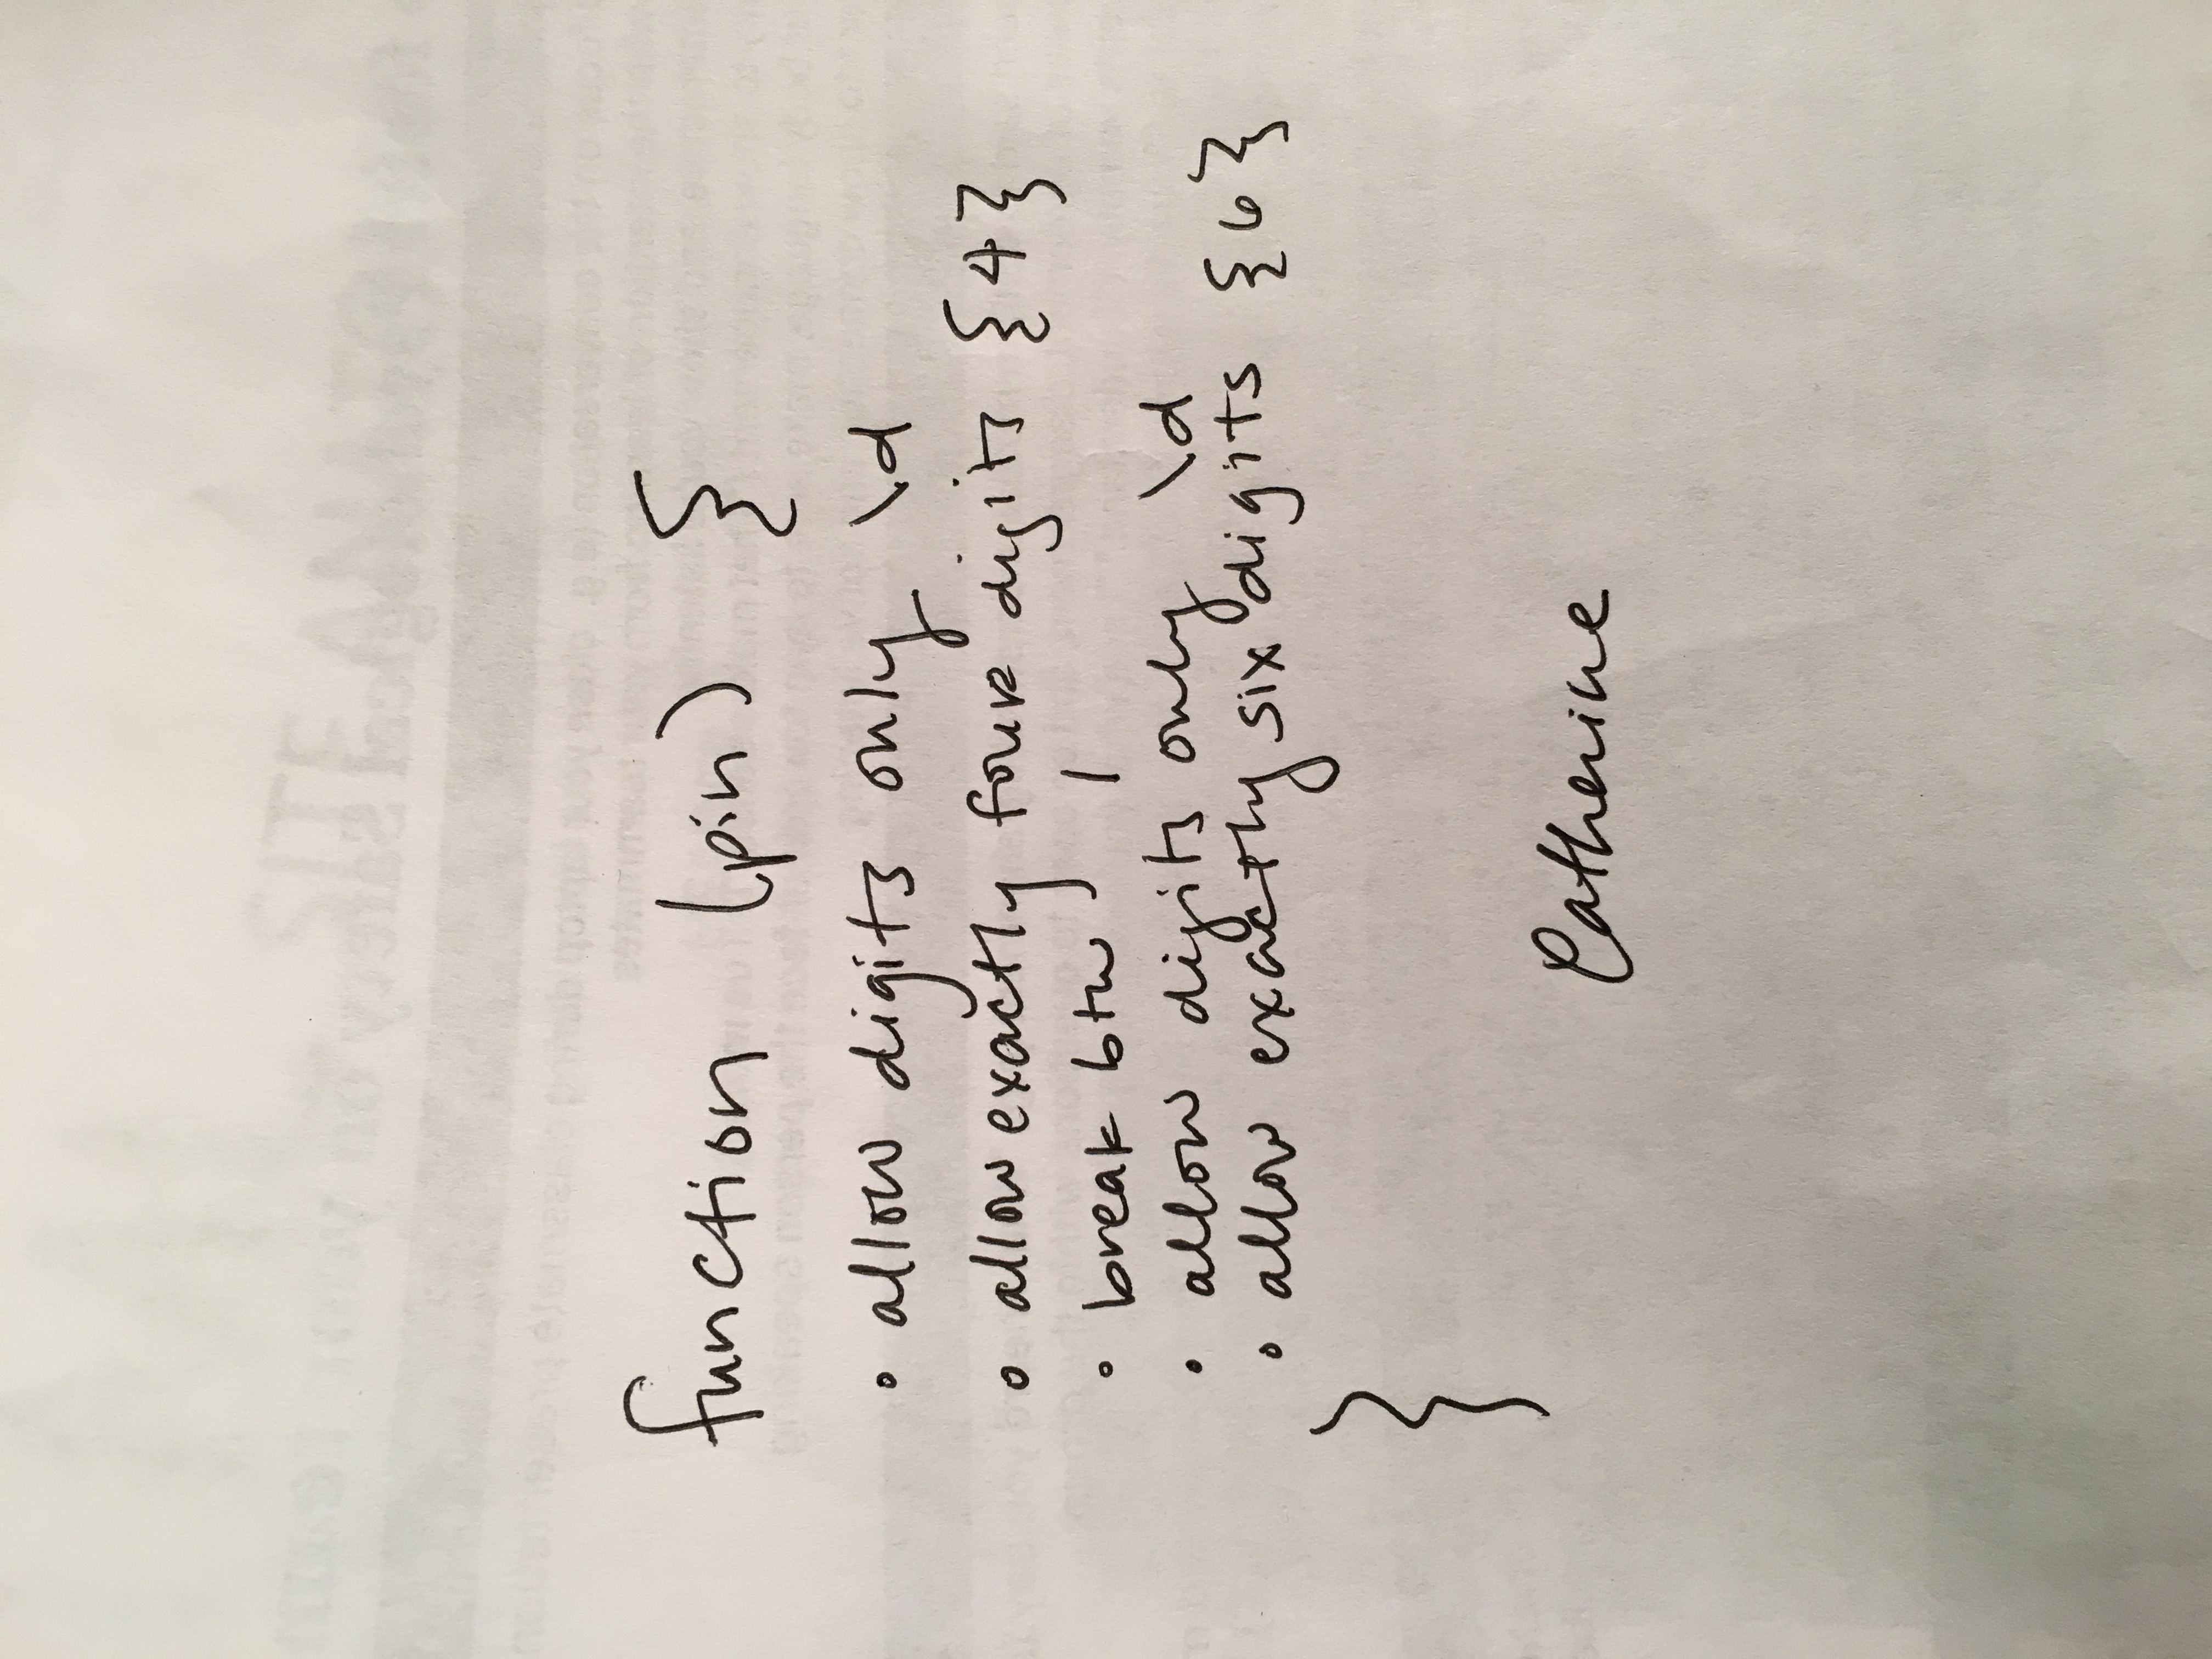 function (pin) {
• allow digits only \d
• allow exactly four digits {4}
• break btw |
• allow digits only \d
• allow exactly six digits {6}
}
Catherine